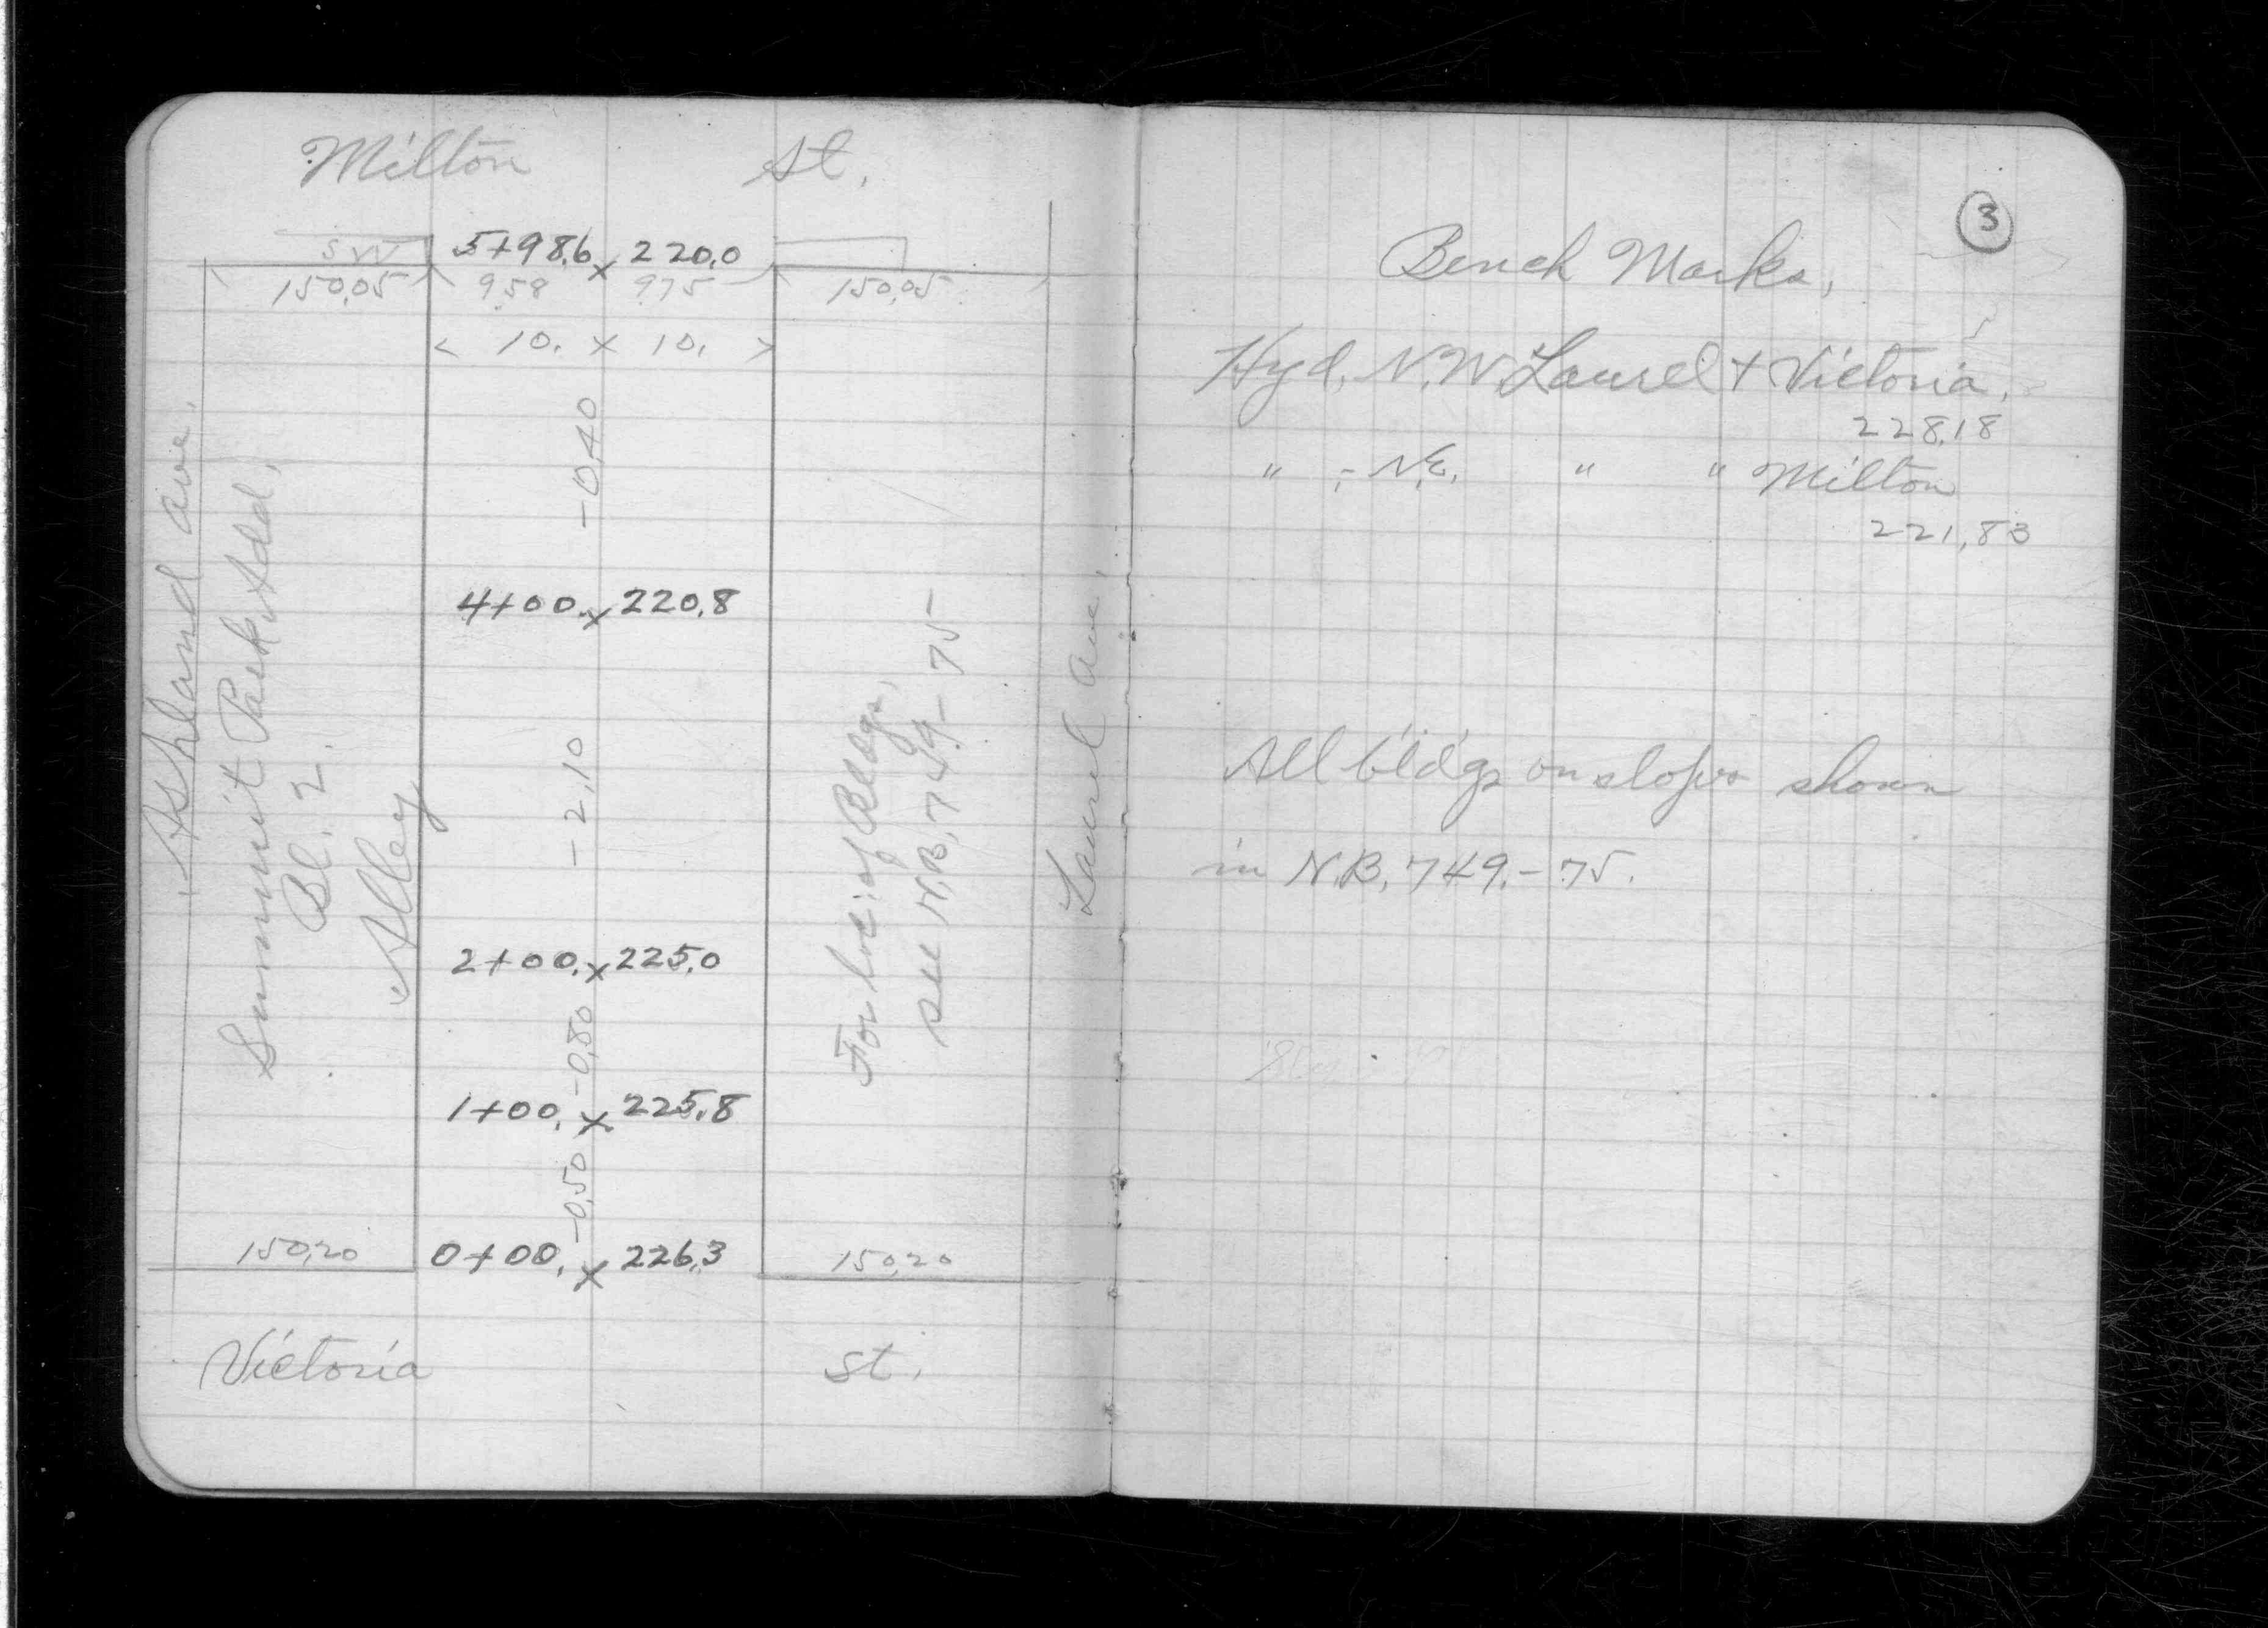 Milton St.
SW 5+98.6 x 220.0
150.05 958 975 150.05
< 10. x 10. >
-0.40
4+00. x 220.8
-2.10
2+00. x 225.0
-0.80
1+00. x 225.8
-0.50
150.20 0+00. x 226.3 150.20
Victoria St.
Ashland Ave.
Summit Park Add.
Bl. 2.
Alley
For loc. of Bldgs,
see N.B. 749-75
Laurel Ave.
3
Bench Marks,
Hyd. N.W. Laurel + Victoria.
228.18
" - N.E. " " Milton
221.83
All bldgs on slopes shown
in N.B. 749.-75.